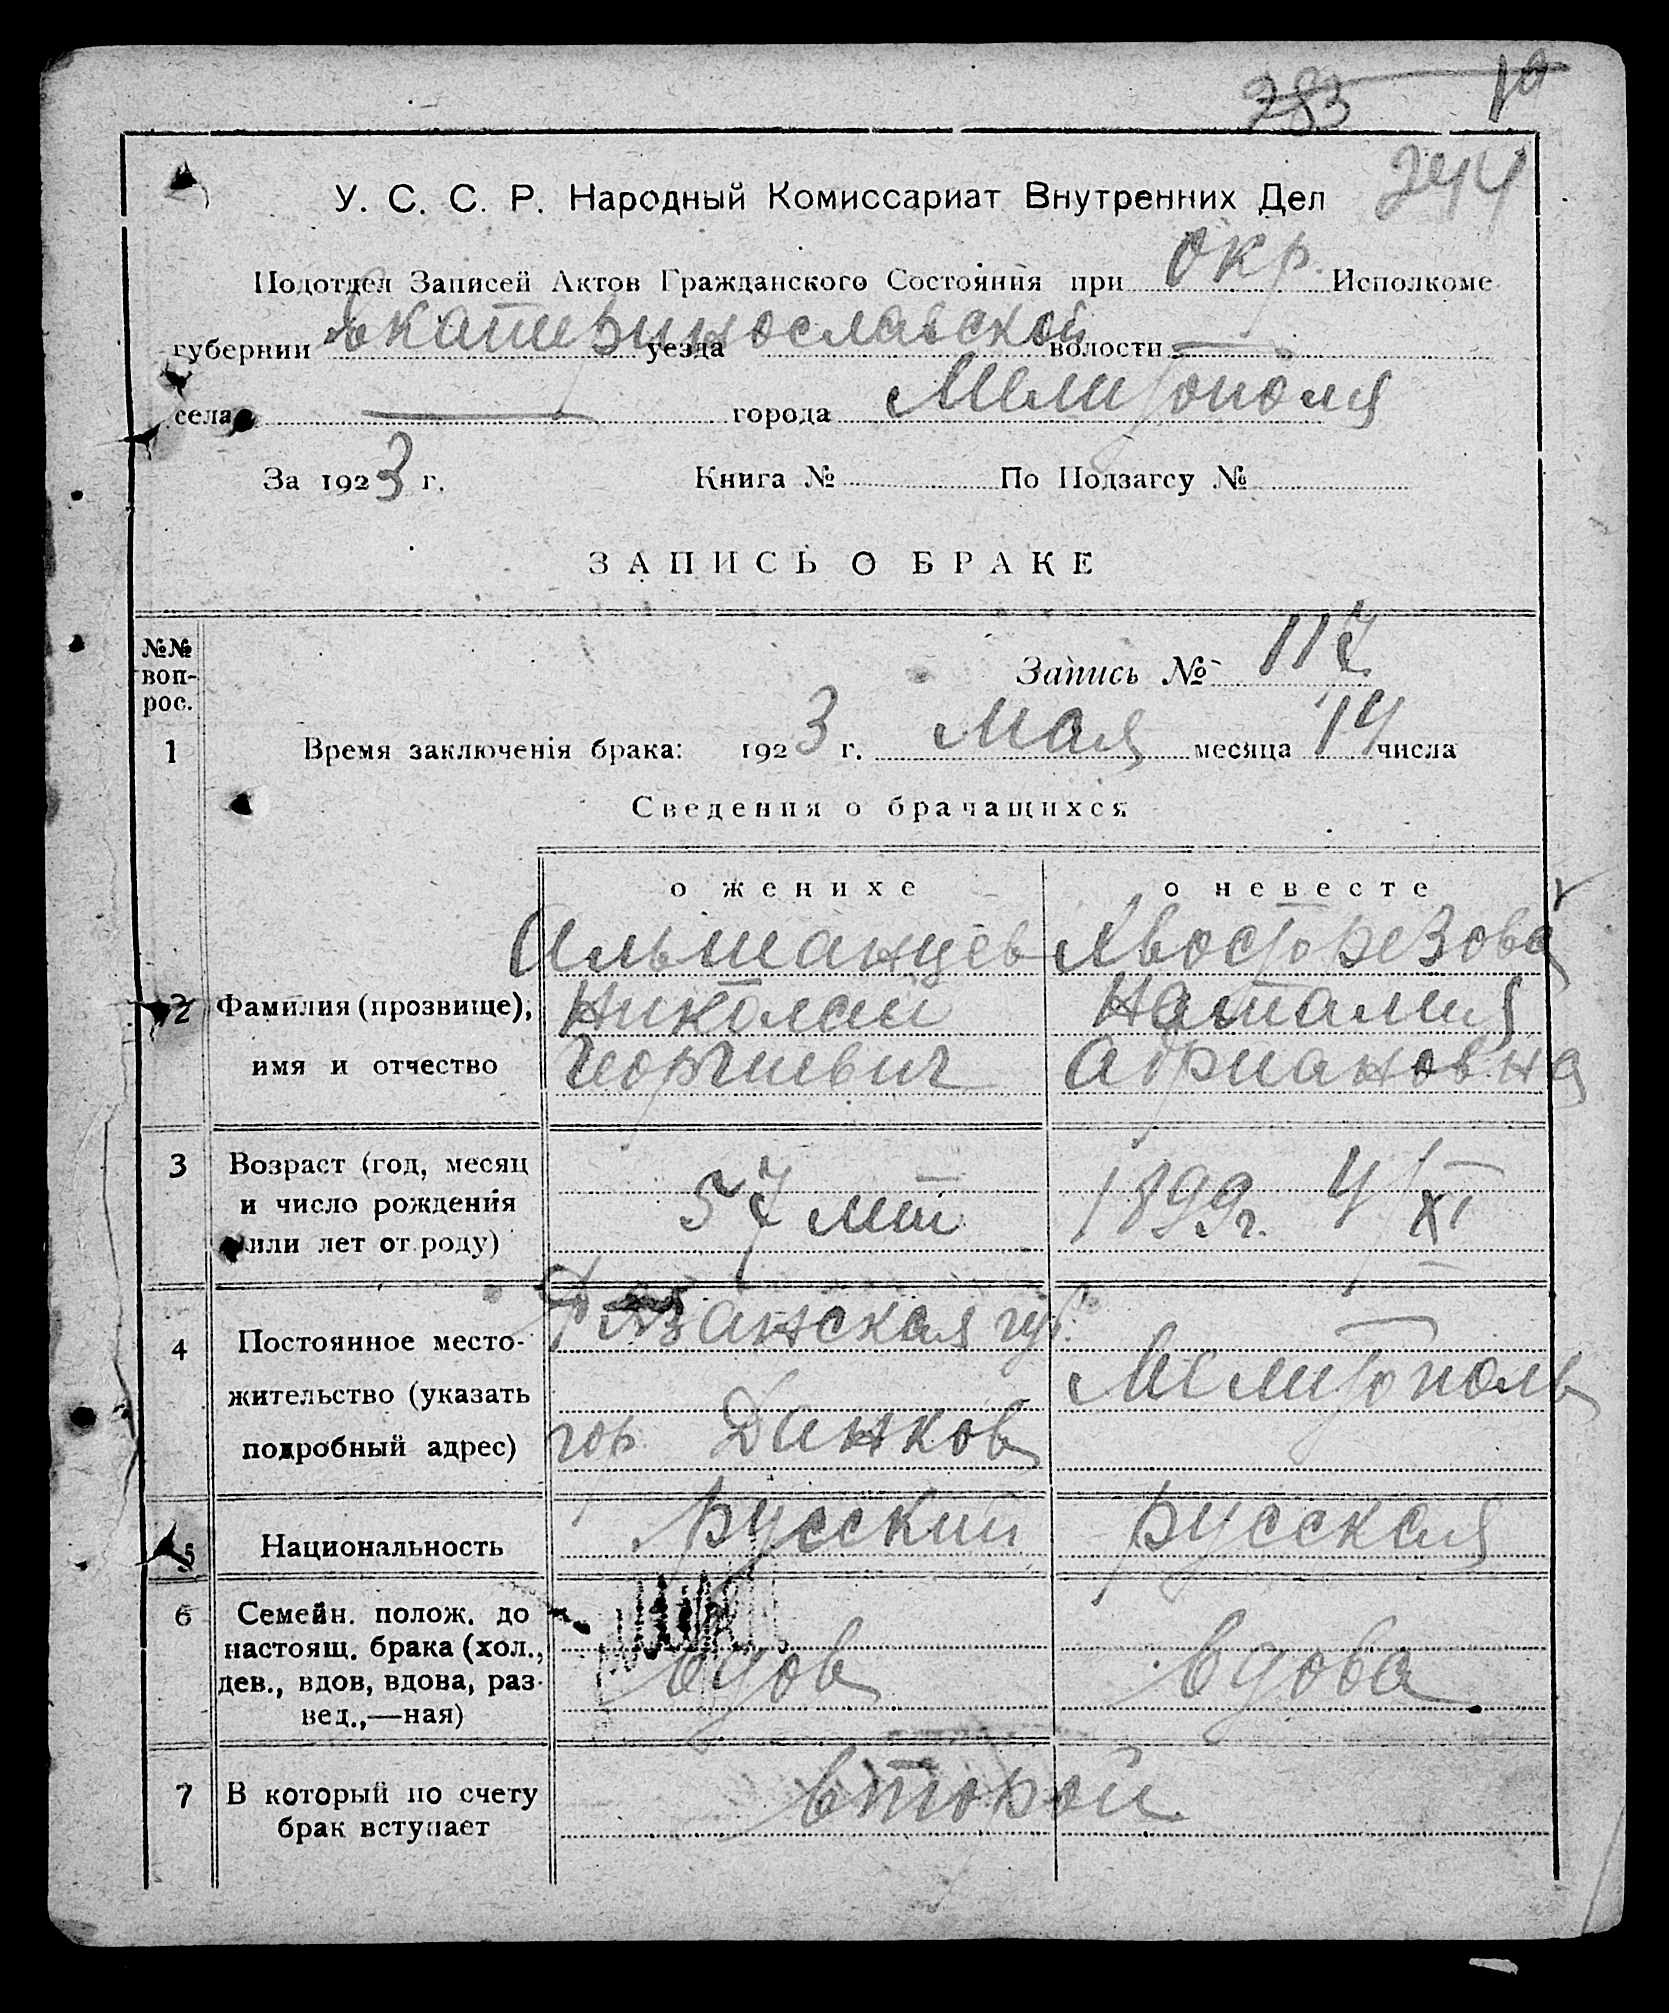 283 10
244
У. С. С. Р. Народный Комиссариат Внутренних Дел
Подотдел Записей Актов Гражданского Состояния при окр. Исполкоме
губернии Екатеринославской уезда волости
села города Мелитополя
За 1923 г. Книга № По Подзагсу №
ЗАПИСЬ О БРАКЕ
№№ воп-
рос.
Запись № 117
1 Время заключенія брака: 1923 г. Мая месяца 14 числа
Сведения о брачащихся
о женихе о невесте
Альшанцев Хвосторезова
2 Фамилия (прозвище), Николай Наталия
имя и отчество Георгиевич Адриановна
3 Возраст (год, месяц
и число рождения 57 лет 1899 г. 4/XI
или лет от роду)
Рязанская губ.
4 Постоянное место-
жительство (указать Мелитополь
подробный адрес) гор Данков
5 Национальность русский русская
6 Семейн. полож. до
настоящ. брака (хол.,
дев., вдов, вдова, раз- вдов вдова
вед.,—ная)
7 В который по счету второй
брак вступает